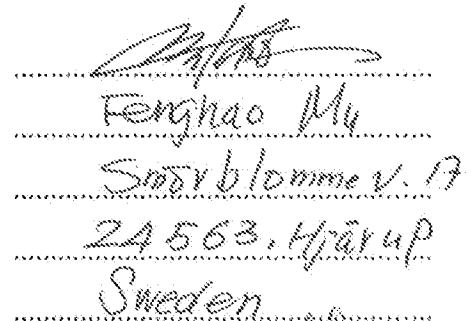 Fenghao Mu
Smörblomme v. 17
24563. Hjärup
Sweden